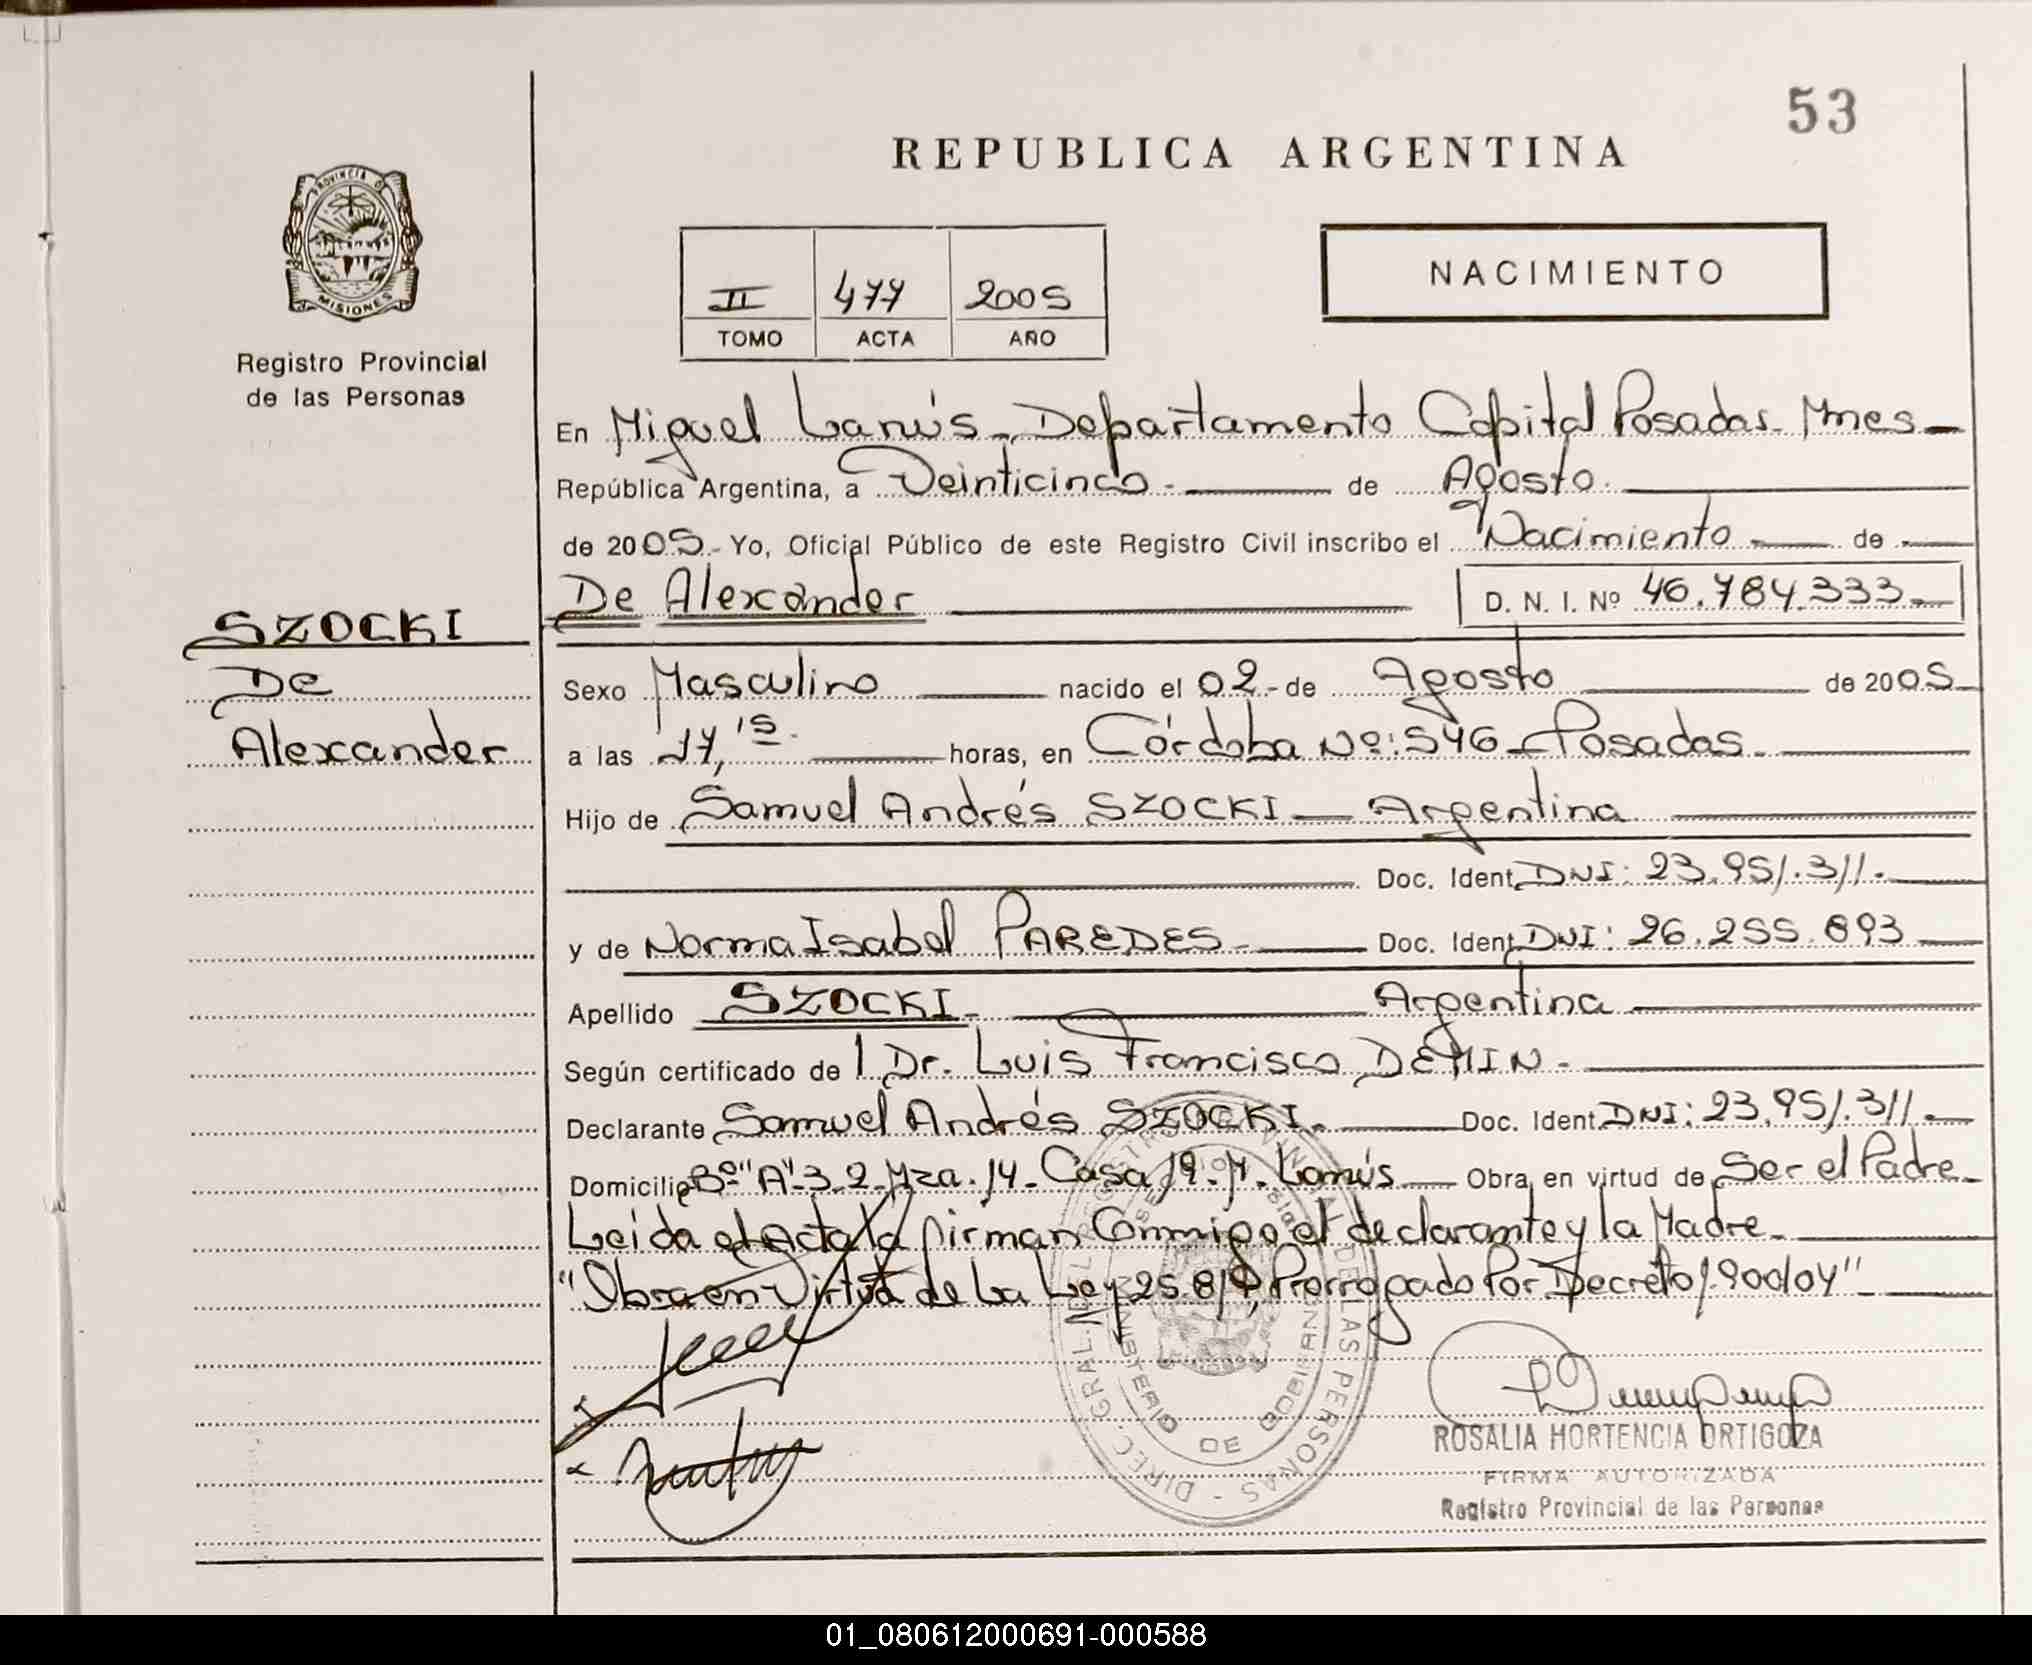 53
REPUBLICA ARGENTINA
PROVINCIA DE
MISIONES
Registro Provincial
de las Personas
II 477 2005
TOMO ACTA AÑO
NACIMIENTO
En Miguel Lanús - Departamento Capital Posadas - Mnes -
República Argentina, a Veinticinco - de Agosto.
de 2005 - Yo, Oficial Público de este Registro Civil inscribo el Nacimiento de
De Alexander D. N. I. Nº 46.784.333
SZOCKI
De
Alexander
Sexo Masculino nacido el 02 - de Agosto de 2005
a las 17,15 horas, en Córdoba Nº: 546 - Posadas
Hijo de Samuel Andrés SZOCKI - Argentina
Doc. Ident. DNI: 23.951.311.
y de Norma Isabel PAREDES - Doc. Ident. DNI: 26.255.893
Apellido SZOCKI - Argentina
Según certificado de 1 Dr. Luis Francisco DEMIN -
Declarante Samuel Andrés SZOCKI. Doc. Ident. DNI: 23.951.311.
Domicilio Bº "A" 3-2-Mza. 14 - Casa 19 - M. Lanús Obra en virtud de Ser el Padre
Leída el Acta la firman Conmigo el declarante y la Madre
"Obra en Virtud de La Ley 25.819, Prorrogado Por Decreto 1.900/04"
DIREC. GRAL. DEL REGISTRO PROVINCIAL DE LAS PERSONAS
MINISTERIO DE GOBIERNO
ROSALIA HORTENCIA ORTIGOZA
FIRMA AUTORIZADA
Registro Provincial de las Personas
01_080612000691-000588